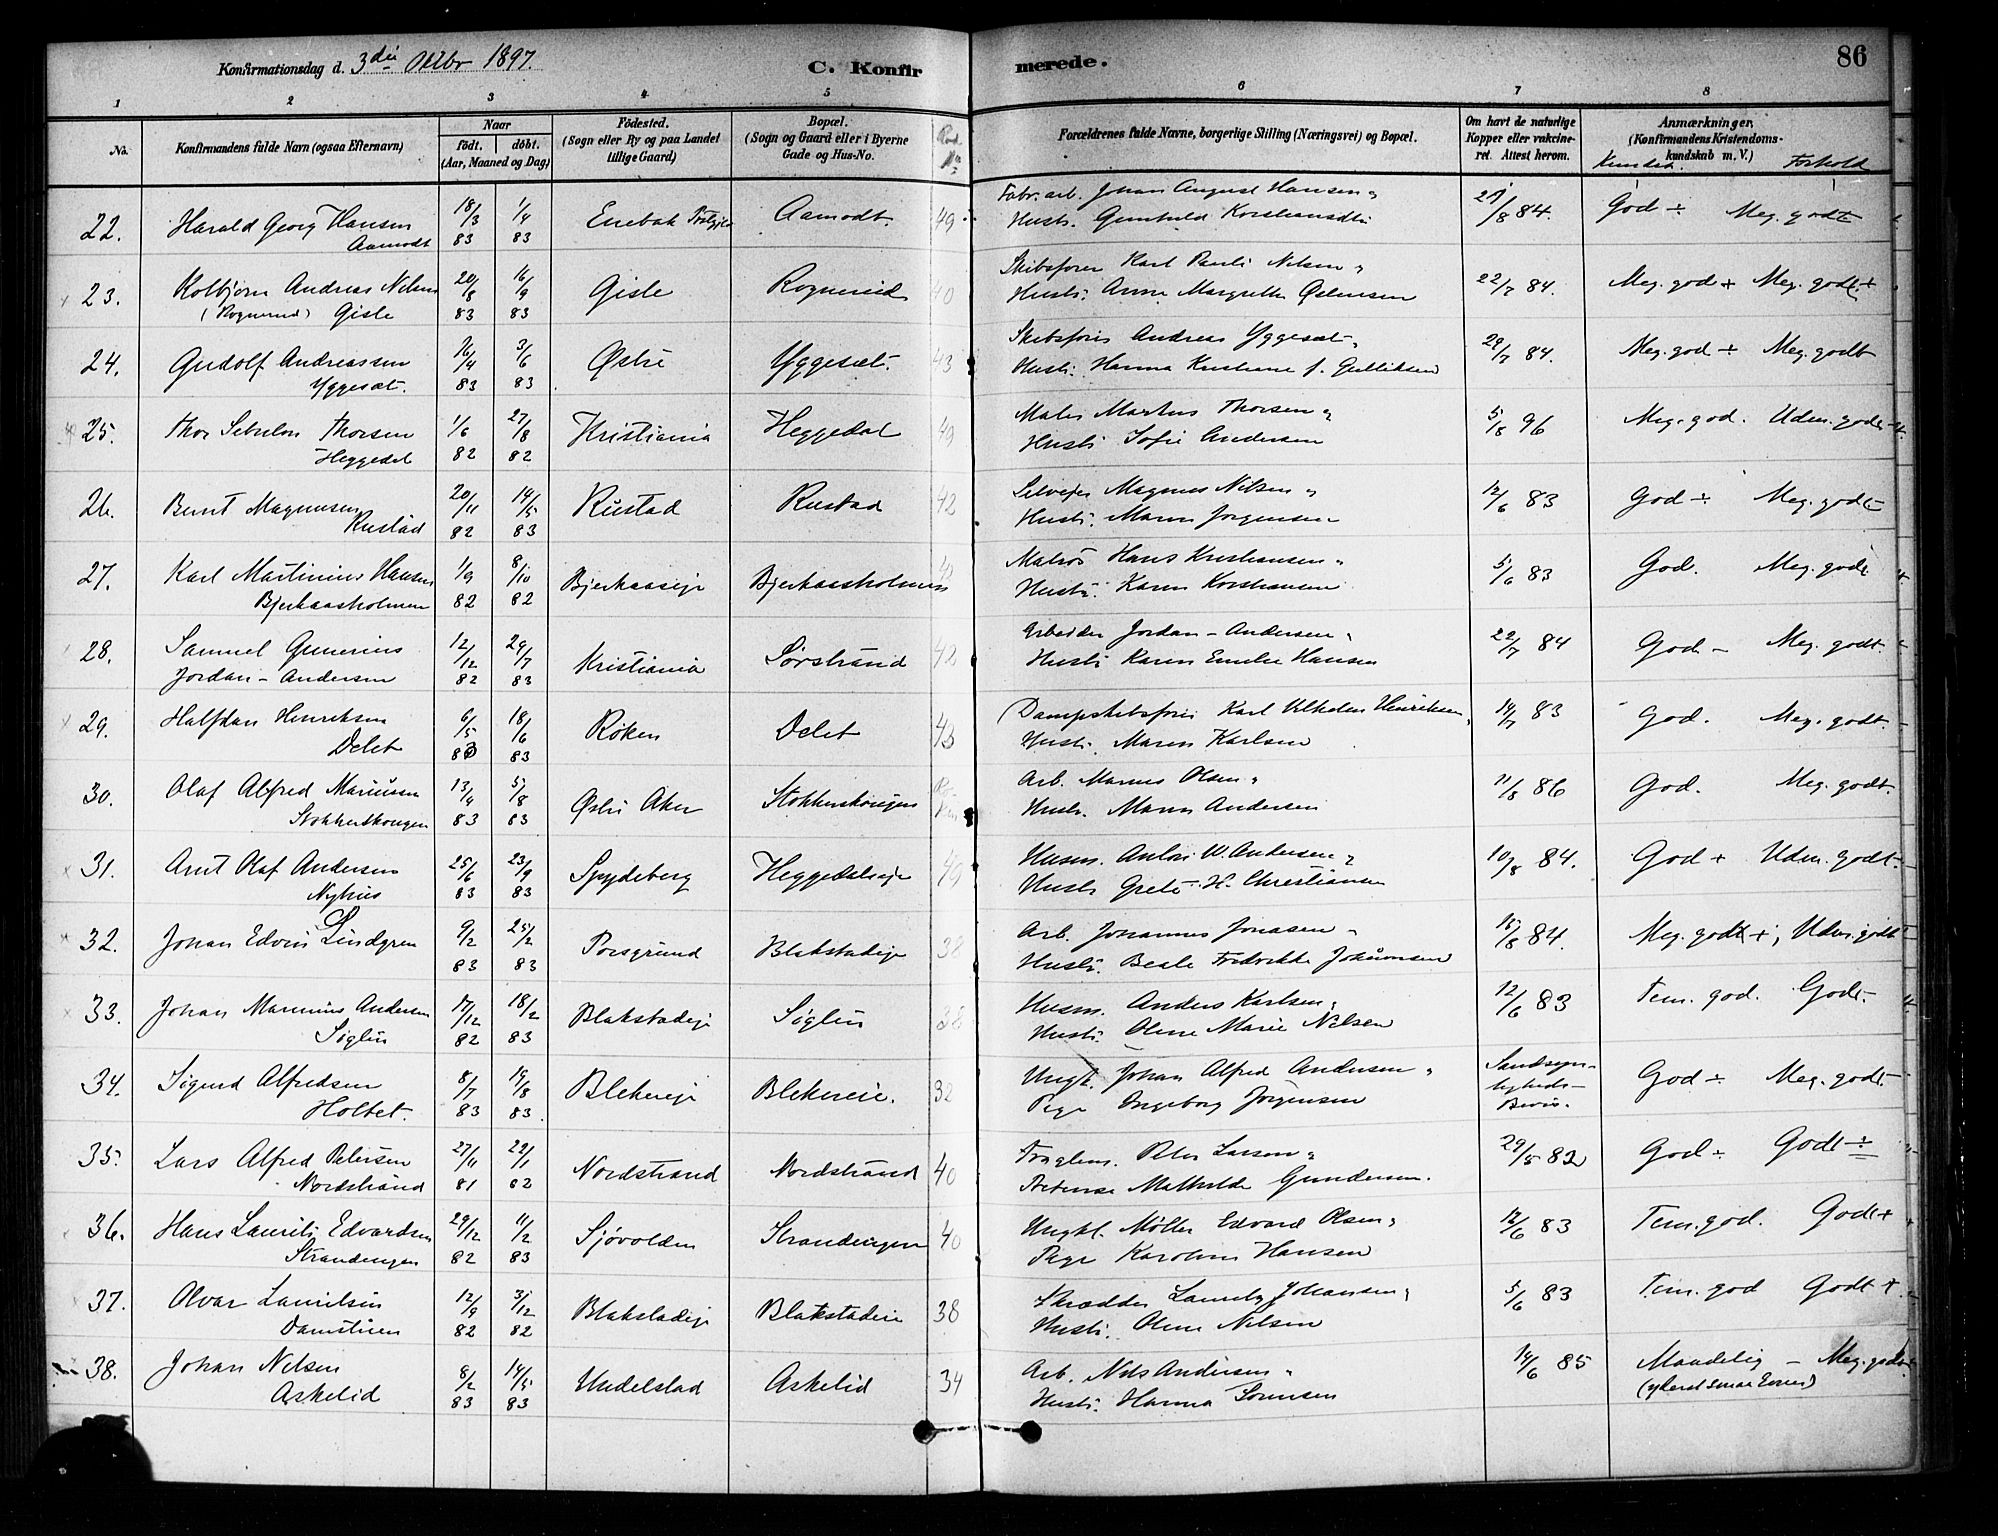 Konfirmationsdag d. 3die Oktbr 1897.
C. Konfirmerede.
86
1 2 3 4 5 6 7 8
No. Konfirmandens fulde Navn (ogsaa Efternavn) Naar født. døbt. (Aar, Maaned og Dag) Fødested. (Sogn eller By og paa Landet tillige Gaard) Bopæl. (Sogn og Gaard eller i Byerne Gade og Hus-No.
Forældrenes fulde Navne, borgerlige Stilling (Næringsvei) og Bopæl. Om havt de naturlige Kopper eller vakcineret. Attest herom. Anmærkninger. (Konfirmandens Kristendomskundskab m. V.) Kundsk. Forhold
22. Harald Georg Hansen 18/3 1/4 Enebak Aamodt 49 Fabr. arb. Johan August Hansen 21/8 84. God ÷ Meg. godt
Aamodt 83 83 Hustr. Gunhild
23. Kolbjørn Andreas Nilsen 20/8 16/9 Gisle Rognerud 40 Skibsfører Karl Pauli Nilsen 22/7 84. Meg. god + Meg. godt +
(Rognerud) Gisle 83 83 Hustr. Anne Margrethe Østensen
24. Gudolf Andreassen 26/4 3/6 Østre Yggesæt. 43 Skibsføris Andreas Yggesæt 29/7 84. Meg. god ÷ Meg. godt
Yggesæt. 83 83 Hustr. Hanna Kristiane f. Gulliksen
25. Thor Sebulon Thorsen 1/6 27/8 Kristiania Heggedal 49 Maler Martus Thorsen 5/8 96 Meg. god. Udm. godt
Heggedal 82 82 Hustr. Sofie Andersen
26. Bernt Magnussen 20/11 14/5 Rustad Rustad 42 Selveier Magnus Nilsen 12/6 83 God ÷ Meg. godt
Rustad 82 83 Hustr. Maren Jørgensen
27. Karl Martinius Hansen 1/9 8/10 Bjerkaaseje Bjerkaasholmen Matros Hans Kristiansen 5/6 83 God. Meg. godt
Bjerkaasholmen 82 82 Hustr. Karen Kristiansen
28. Samuel Gunerius 12/12 29/7 Kristiania Sørstrand 42 Arbeider Jordan-Andersen 22/7 84 God - Meg. godt.
Jordan-Andersen 82 83 Hustr. Karen Emilie Hansen
29. Halfdan Henriksen 6/5 18/6 Røken Delet 43 Dampskibsføris Karl Vilhelm Henriksen 14/7 83 God. Meg. godt.
Delet 83 83 Hustr. Maren Karlsen
30. Olaf Alfred Mariussen 13/4 5/8 Østre Aker Stokkerskougen Arb. Marius Olsen 11/8 86 God. Meg. godt.
Stokkerskougen 83 83 Hustr. Maren Andersen
31. Arnt Olaf Andersen 25/6 23/9 Spydeberg Heggedalseje 49 Husm. Anton W. Andersen 10/8 84. God + Udm. godt.
Nyhus 83 83 Hustr. Grete H. Christiansen
32. Johan Edvin Lindgren 9/2 25/2 Porsgrund Blakstadeje 38 Arb. Johannes Jonasen 15/8 84. Meg. godt +, Udm. godt
83 83 Hustr. Beate Fredrikke Johannsen
33. Johan Marinius Andersen 17/12 18/2 Blakstadeje Søglen 38 Husm. Anders Karlsen 12/6 83 Tem. god. Godt.
Søglen 82 83 Hustr. Oline Marie Nilsen
34. Sigurd Alfredsen 8/7 19/8 Blekereje Blekereie. 32 Ungk. Johan Alfred Andersen Sandsynligheds- God ÷ Meg. godt
Holtet. 83 83. Pige Ingeborg Jørgensen Bevis.
35. Lars Alfred Petersen 27/11 22/1 Nordstrand Nordstrand 40 Peter Larsen 29/5 82 God ÷ Godt ÷
Nordstrand 81 82 Mathilde Gundersen.
36. Hans Laurits Edvardsen 29/12 11/2 Sjøvolden Strandengen 40 Ungk. Møller Edvard Olsen 12/6 83 Tem. god. Godt +
Strandengen 82 83 Pige Karoline Hansen
37. Olvar Lauritsen 12/9 3/12 Blakstadeje Blakstadeie 38 Skrædder Laurits Johansen 5/6 83 Tem. god Godt +
82 82 Hustr. Oline Nilsen
38. Johan Nilsen 8/2 14/5 Undelstad Askelid 34 Arb. Nils Andersen 14/6 85 Maadelig - Meg. godt
Askelid 83 83 Hustr. Hanna Sørensen (yderst smaa Evner)